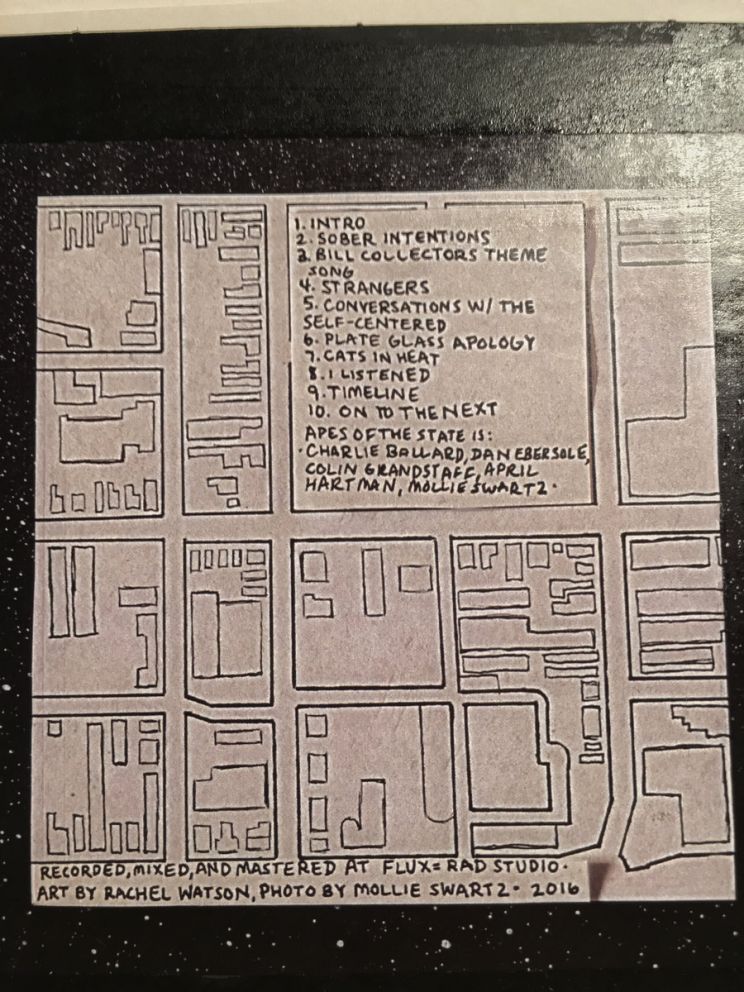 1. INTRO
2. SOBER INTENTIONS
3. BILL COLLECTORS THEME
SONG
4. STRANGERS
5. CONVERSATIONS W/ THE
SELF-CENTERED
6. PLATE GLASS APOLOGY
7. CATS IN HEAT
8. I LISTENED
9. TIMELINE
10. ON TO THE NEXT
APES OF THE STATE IS:
CHARLIE BALLARD, DAN EBERSOLE,
COLIN GRANDSTAFF, APRIL
HARTMAN, MOLLIE SWARTZ.
RECORDED, MIXED, AND MASTERED AT FLUX=RAD STUDIO.
ART BY RACHEL WATSON, PHOTO BY MOLLIE SWARTZ. 2016